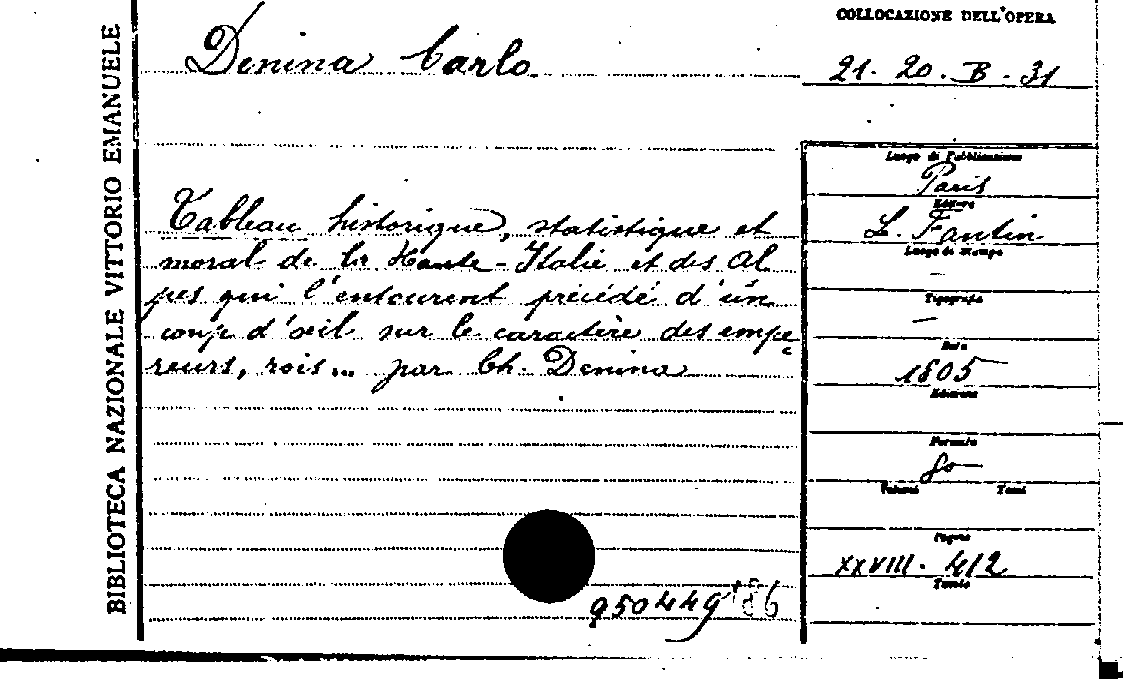 BIBLIOTECA NAZIONALE VITTORIO EMANUELE
Denina Carlo
COLLOCAZIONE DELL'OPERA
21. 20. B. 31
Tableau historique, statistique et
moral de la Haute-Italie et des Al
pes qui l'entourent précédé d'un
coup d'œil sur le caractère des empe
reurs, rois... par Ch. Denina
Luogo di Pubblicazione
Paris
Editore
L. Fantin
Luogo di stampa
—
Tipografia
—
Data
1805
Edizione
Formato
8o
Volumi Tomi
Pagine
XXVIII. 412
Tavole
950449